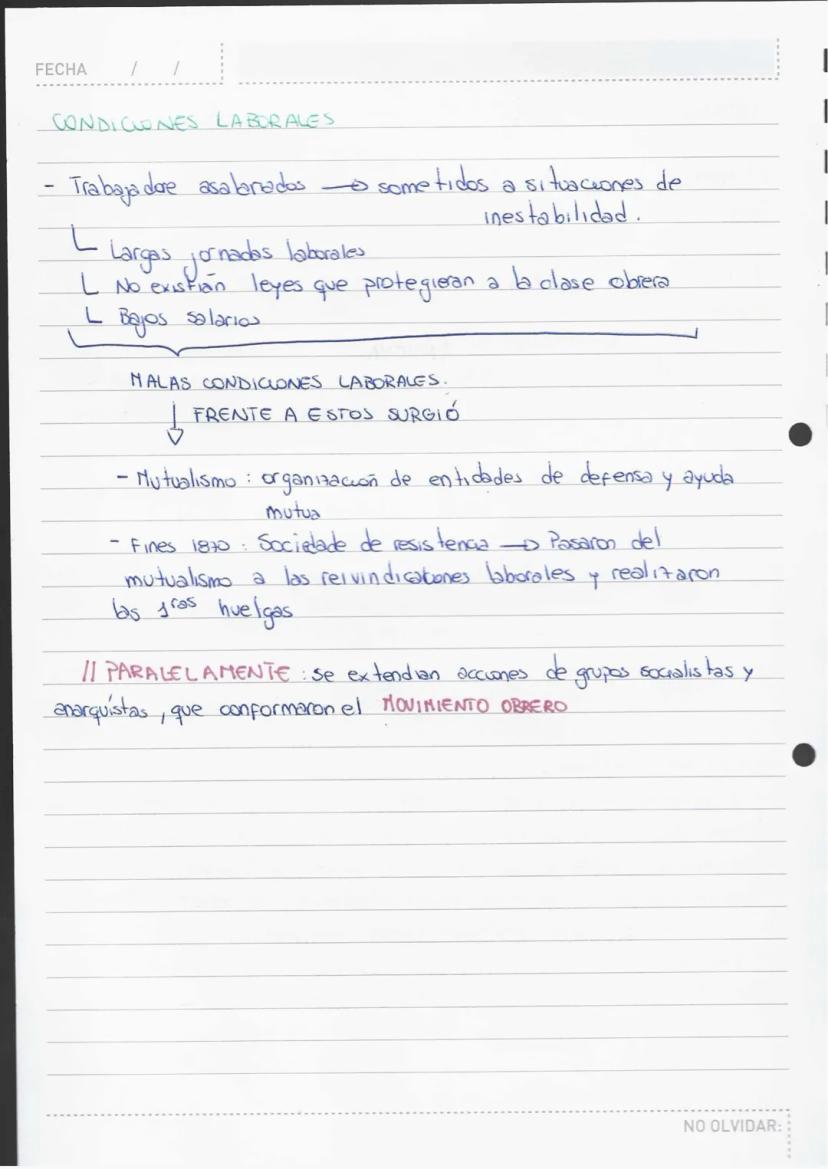 FECHA / /
CONDICIONES LABORALES
- Trabajadore asalariados → sometidos a situaciones de
inestabilidad.
Largas jornadas laborales
No existían leyes que protegieran a la clase obrera
Bajos salarios
MALAS CONDICIONES LABORALES.
FRENTE A ESTOS SURGIÓ
- Mutualismo : organización de entidades de defensa y ayuda
mutua
- Fines 1870 : Sociedade de resistencia → Pasaron del
mutualismo a las reivindicaciones laborales y realizaron
las 1ras huelgas
// PARALELAMENTE : se extendian acciones de grupos socialistas y
anarquistas, que conformaron el MOVIMIENTO OBRERO
NO OLVIDAR: